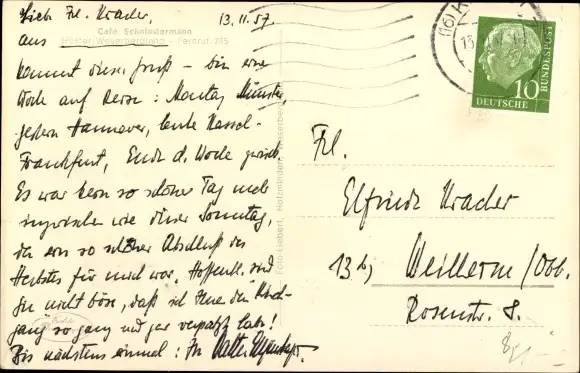 Liebe Frl. Kracher, 13.11.57
Café Schnledermann
aus Höxter/Weserbergland - Fernruf 285
kommt dieser Gruß – bin eine
Woche auf Reise: Montag Münster,
gestern Hannover, heute Kassel-
Frankfurt, Ende d. Woche zurück.
Es war kein so schöner Tag mehr
inzwischen wie dieser Sonntag,
der ein so schöner Abschluß des
Herbstes für mich war. Hoffentl. sind
Sie nicht böse, daß ich Ihnen den
gang so ganz und gar verpatzt habe!
Bis nächstens einmal: Ihr
Foto-Liebert, Holzminden
(16)
13
10
DEUTSCHE
BUNDESPOST
Frl.
Elfriede Kracher
13b) Weilheim/Obb.
Rosenstr. 8.